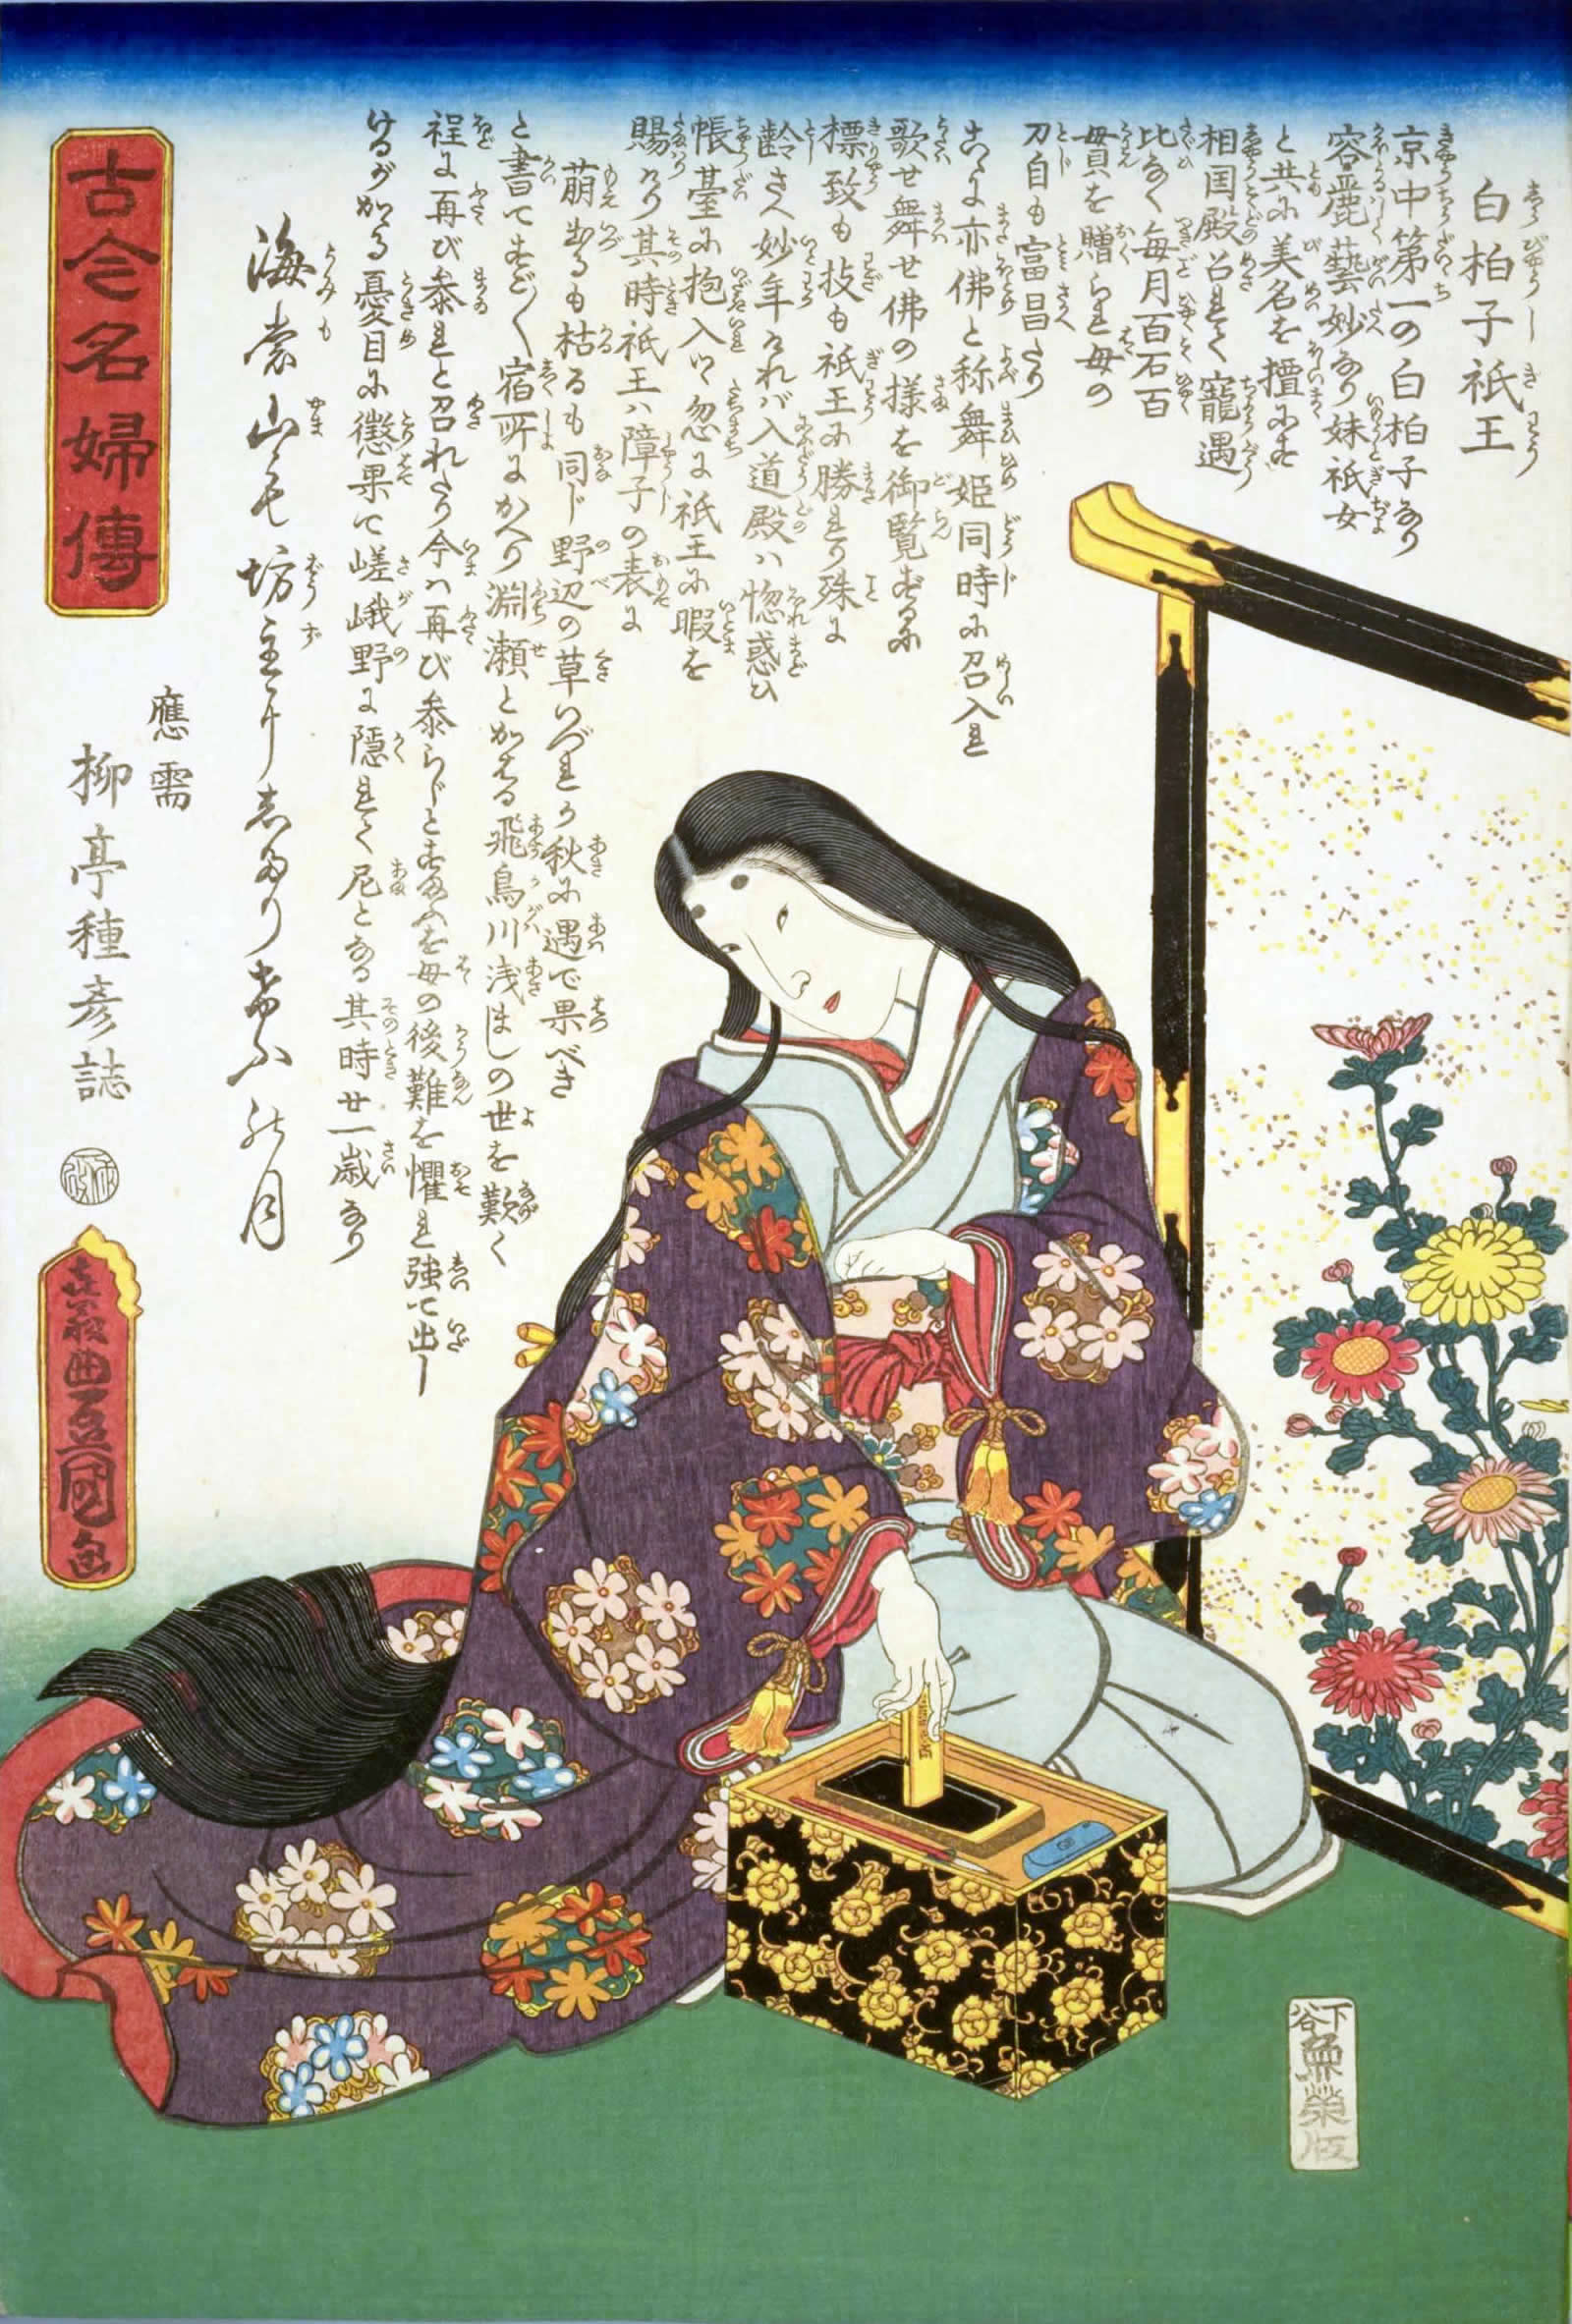 白拍子祇王
京中第一の白拍子なり
容麗藝妙なり妹祇女
と共に美名を擅にす
相国殿召れて寵遇
比なく毎月百石百
貫を贈られ母の
刀自も富昌たり
亦佛と称舞姫同時に召入れ
歌せ舞せ佛の様を御覧ずるに
標致も技も祇王に勝れり殊に
齢さへ妙年なれバ入道殿ハ惚惑ひ
帳臺に抱入つ忽に祇王に暇を
賜へり其時祇王ハ障子の表に
萠出るも枯るも同じ野辺の草いづれか秋に遇で果べき
と書てすご〱宿所にかへり淵瀬とかはる飛鳥川浅ましの世を歎く
程に再び参れと召れたり今ハ再び参らじと を母の後難を懼れ強て出し
けるがかゝる憂目に懲果て嵯峨野に隠れて尼となる其時廿一歳なり
海棠山も坊主 けふの月
古今名婦傳
應需
柳亭種彦誌
喜翁曲豊國画
下谷
魚榮版